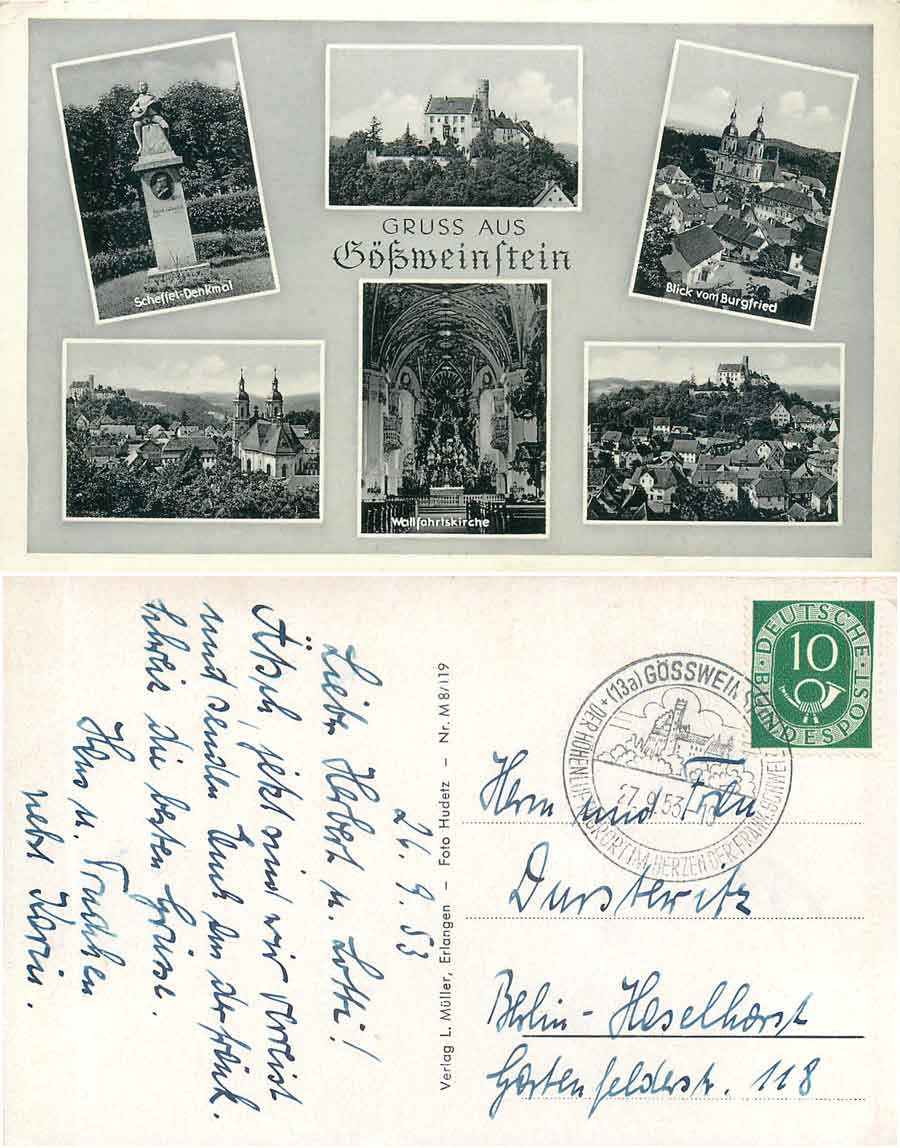 GRUSS AUS
Gößweinstein
Scheffel-Denkmal
Blick vom Burgfried
Wallfahrtskirche
26.9.53
Liebe Herbert u. Lotti!
Ätsch, jetzt sind wir verreist
und senden Euch aus der fränk.
Schweiz die besten Grüsse.
Hans u. Frauchen
nebst Karin.
Verlag L. Müller, Erlangen – Foto Hudetz – Nr. M 8/119
DEUTSCHE
BUNDESPOST
10
(13a) GÖSSWEIN
27.9.53
DER HÖHENLUFTKURORT IM HERZEN DER FRÄNK. SCHWEIZ
Herrn und Frau
Durstewitz
Berlin-Haselhorst
Gartenfelderstr. 118